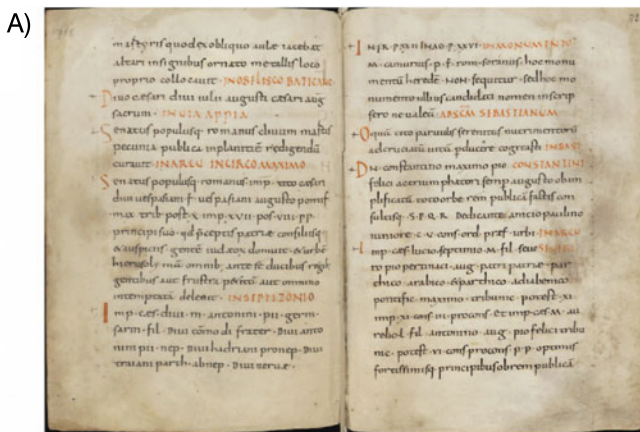 A)
martyris quod ex obliquo aulae iacebat
altari insignibus ornato metallis loco
proprio collocavit · IN OBELISCO VATICANO
Divo cæsari divi iulii augusti cæsari aug
sacrum · IN VIA APPIA
Senatus populusq· romanus clivum martis
pecunia publica in planitiem redigendū
curavit IN ARCU IN CIRCO MAXIMO
Senatus populusq· romanus imp· tito cesari
divi vespasiani f· vespasiano augusto pontif
max trib· pot· x· imp· xvii· pos· viii· p·p·
principi suo · qd pceptis patriæ consiliisq
& auspiciis gentē iudeox domuit · & urbē
hierosolymā omnib; ante se ducibus regib;
gentibus aut frustra petitā aut omnino
intemptatā delevit · IN SEPTIZONIO
Imp· cæs· divi · m· antonini · pii · germ
sarm· fil· divi cōmodi frater · divi anto
nini pii · nep· divi hadriani pronep· divi
traiani parth· abnep· divi nervæ ·
72
M· camurius · p· f· rom· soranus · hoc monu
mentū heredē · non · sequitur · sed hoc mo
numento ullius candidati nomen inscrip
sero ne valeā · AD SC̄M SEBASTIANUM
Dn· constantino maximo pio · CONSTANTINI
felici ac triumphatori semp augusto ob am
plificatā toto orbe rem publicā factis con
sultisq· S·P·Q·R· Dedicante · anicio paulino
iuniore · c· v· cons· ord· præf· urbi · IN ARCU
Imp· cæs· lucio septimio · M· fil· seve
ro pio pertinaci · aug· patri patriæ · par
thico · arabico · & parthico · adiabenico
pontific· maximo · tribunic· potest· xi·
imp· xi· cons· iii· procons· et imp· cæs· M· au
relio· l· fil· antonino · aug· pio felici tribu
nic· potest· vi· cons· procons· p·p· optimis
fortissimisq· principibus ob rem publicā